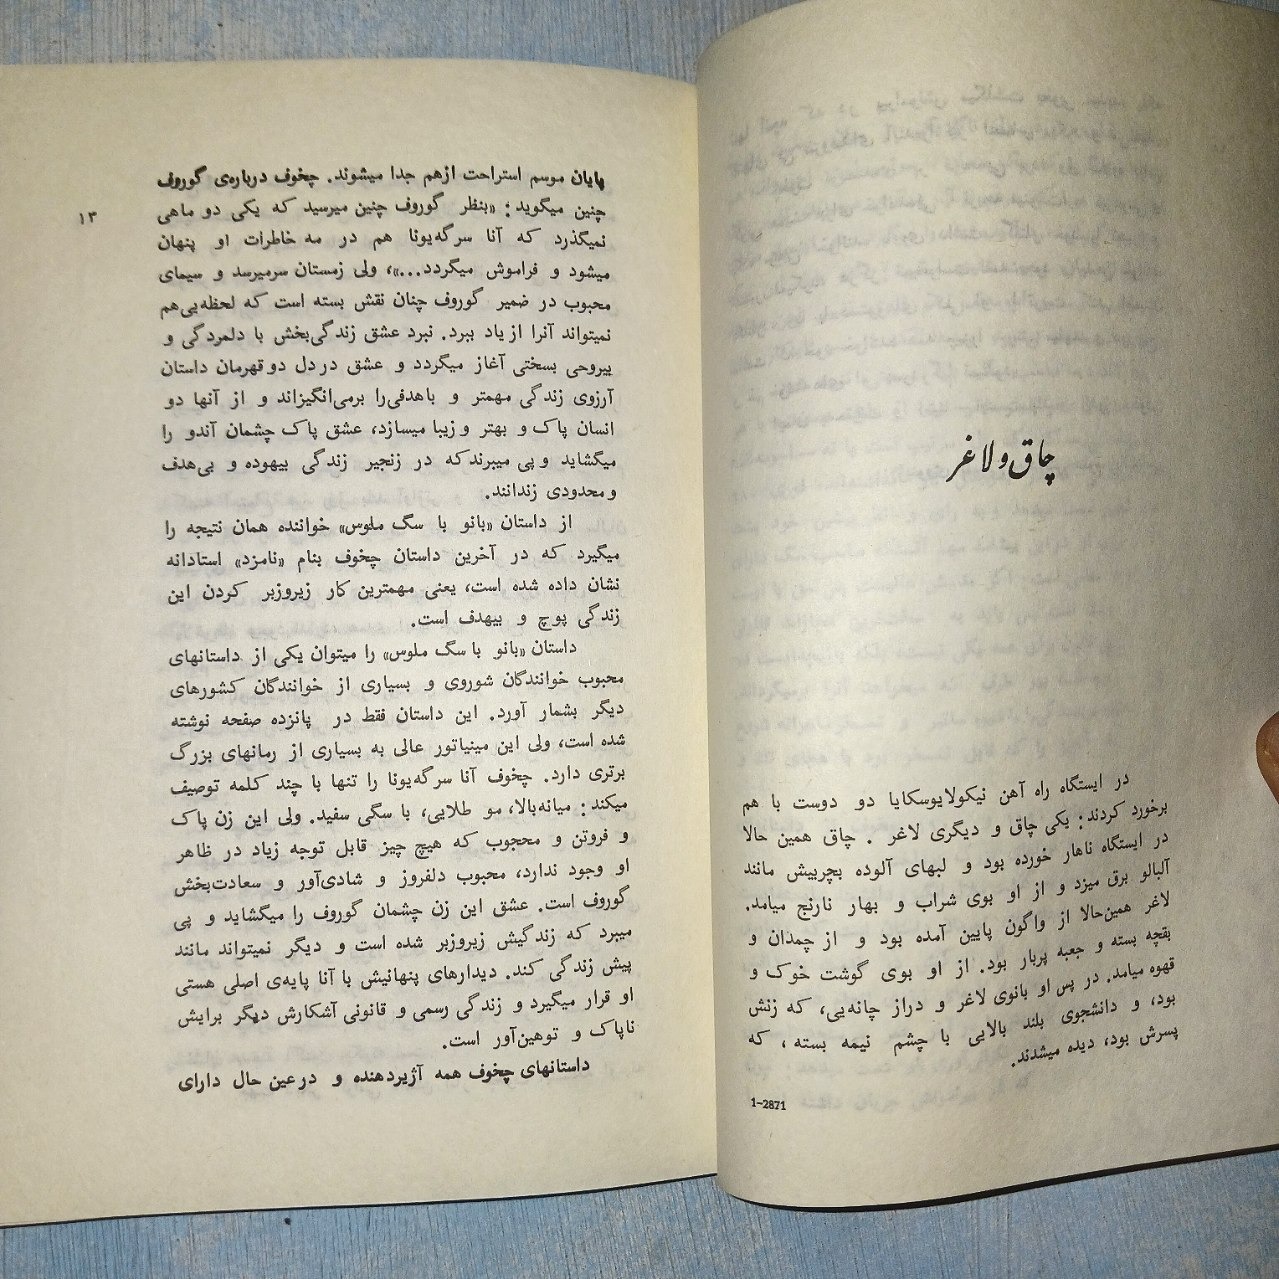 چاق و لاغر
در ایستگاه راه آهن نیکولایوسکایا دو دوست با هم
برخورد کردند: یکی چاق و دیگری لاغر . چاق همین حالا
در ایستگاه ناهار خورده بود و لبهای آلوده بچربیش مانند
آلبالو برق میزد و از او بوی شراب و بهار نارنج میامد.
لاغر همین‌حالا از واگون پایین آمده بود و از چمدان و
بقچه بسته و جعبه پربار بود. از او بوی گوشت خوک و
قهوه میامد. در پس او بانوی لاغر و دراز چانه‌یی، که زنش
بود، و دانشجوی بلند بالایی با چشم نیمه بسته، که
پسرش بود، دیده میشدند.
1-2871
۱۳
پایان موسم استراحت ازهم جدا میشوند. چخوف درباره‌ی گوروف
چنین میگوید: «بنظر گوروف چنین میرسید که یکی دو ماهی
نمیگذرد که آنا سرگه‌یونا هم در مه خاطرات او پنهان
میشود و فراموش میگردد...»، ولی زمستان سرمیرسد و سیمای
محبوب در ضمیر گوروف چنان نقش بسته است که لحظه‌یی‌هم
نمیتواند آنرا از یاد ببرد. نبرد عشق زندگی‌بخش با دلمردگی و
بیروحی بسختی آغاز میگردد و عشق در دل دو قهرمان داستان
آرزوی زندگی مهمتر و باهدفی‌را برمی‌انگیزاند و از آنها دو
انسان پاک و بهتر و زیبا میسازد، عشق پاک چشمان آندو را
میگشاید و پی میبرند که در زنجیر زندگی بیهوده و بی‌هدف
و محدودی زندانند.
از داستان «بانو با سگ ملوس» خواننده همان نتیجه را
میگیرد که در آخرین داستان چخوف بنام «نامزد» استادانه
نشان داده شده است، یعنی مهمترین کار زیروزبر کردن این
زندگی پوچ و بیهدف است.
داستان «بانو با سگ ملوس» را میتوان یکی از داستانهای
محبوب خوانندگان شوروی و بسیاری از خوانندگان کشورهای
دیگر بشمار آورد. این داستان فقط در پانزده صفحه نوشته
شده است، ولی این مینیاتور عالی به بسیاری از رمانهای بزرگ
برتری دارد. چخوف آنا سرگه‌یونا را تنها با چند کلمه توصیف
میکند: میانه‌بالا، مو طلایی، با سگی سفید. ولی این زن پاک
و فروتن و محجوب که هیچ چیز قابل توجه زیاد در ظاهر
او وجود ندارد، محبوب دلفروز و شادی‌آور و سعادت‌بخش
گوروف است. عشق این زن چشمان گوروف را میگشاید و پی
میبرد که زندگیش زیروزبر شده است و دیگر نمیتواند مانند
پیش زندگی کند. دیدارهای پنهانیش با آنا پایه‌ی اصلی هستی
او قرار میگیرد و زندگی رسمی و قانونی آشکارش دیگر برایش
ناپاک و توهین‌آور است.
داستانهای چخوف همه آژیردهنده و درعین حال دارای